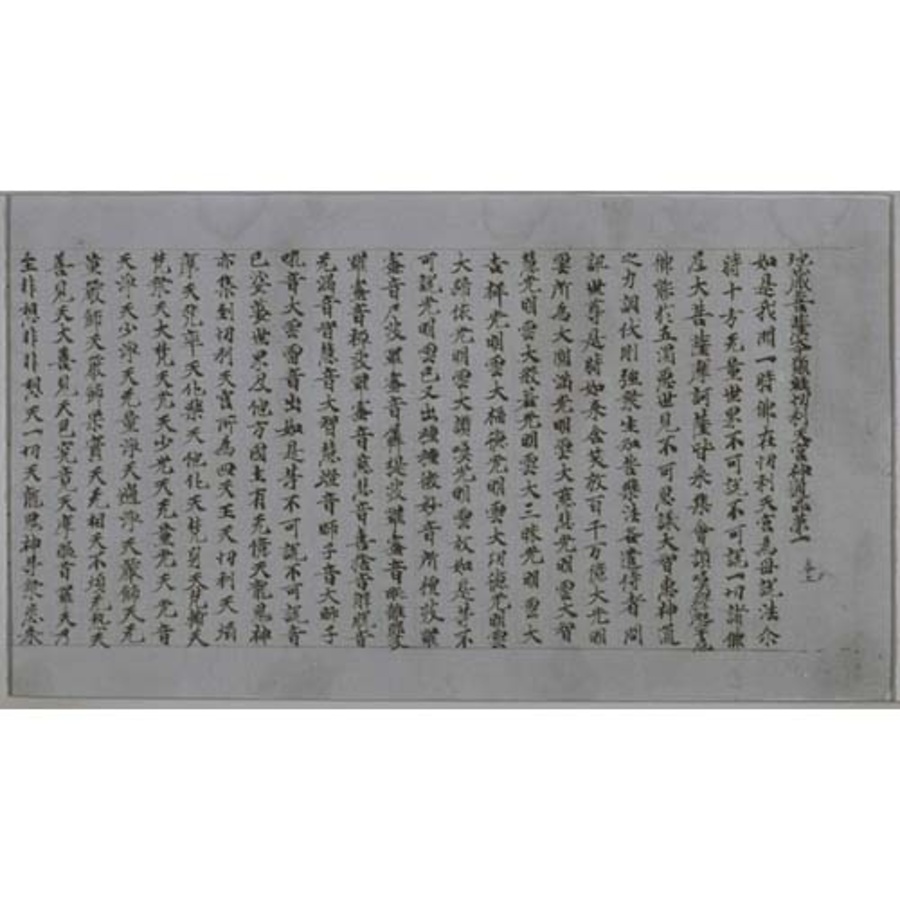 地藏菩薩本願經忉利天宮神通品第一
如是我聞一時佛在忉利天宮為母說法尒
時十方无量世界不可說不可說一切諸佛
及大菩薩摩訶薩皆來集會讚嘆釋迦牟尼
佛能於五濁惡世見不可思議大智惠神通
之力調伏剛強衆生知苦樂法各遣侍者問
訊世尊是時如来含笑放百千万億大光明
雲所為大圓滿光明雲大慈悲光明雲大智
慧光明雲大般若光明雲大三昧光明雲大
吉祥光明雲大福德光明雲大功德光明雲
大歸依光明雲大讚嘆光明雲放如是等不
可說光明雲已又出種種微妙音所檀波羅
蜜音尸波羅蜜音羼提波羅蜜音毗離耶波
羅蜜音禪波羅蜜音慈悲音喜捨音解脫音
无漏音智慧音大智慧音師子音大師子
吼音大雲雷音出如是等不可說不可說音
已娑婆世界及他方國土有无億天龍鬼神
亦集到忉利天宮所為四天王天忉利天須
夜摩天兜率天化樂天他化天梵身天梵輔天
梵衆天大梵天光天少光天无量光天光音
天淨天少淨天无量淨天遍淨天嚴飾天无
量嚴飾天嚴飾果實天无想天不煩无熱天
善見天大善見天色究竟天摩醯首羅天乃
至非想非非想天一切天龍鬼神等衆悉來